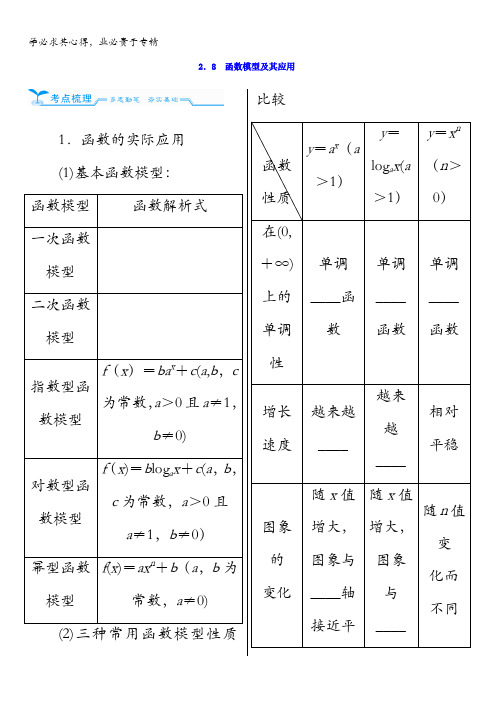 学必求其心得,业必贵于专精
2.8 函数模型及其应用
考点梳理 多思勤笔 夯实基础
1.函数的实际应用
(1)基本函数模型:
函数模型 函数解析式
一次函数
模型
二次函数
模型
指数型函
数模型
f(x)=baˣ+c(a,b,c
为常数,a>0且a≠1,
b≠0)
对数型函
数模型
f(x)=blogₐx+c(a,b,
c为常数,a>0且
a≠1,b≠0)
幂型函数
模型
f(x)=axⁿ+b(a,b为
常数,a≠0)
(2)三种常用函数模型性质
比较
函数
性质
y=aˣ(a
>1)
y=
logₐx(a
>1)
y=xⁿ
(n>
0)
在(0,
+∞)
上的
单调
性
单调
____函
数
单调
____
函数
单调
____
函数
增长
速度
越来越
____
越来
越
____
相对
平稳
图象
的
变化
随x值
增大,
图象与
____轴
接近平
随x值
增大,
图象
与
____
随n值
变
化而
不同